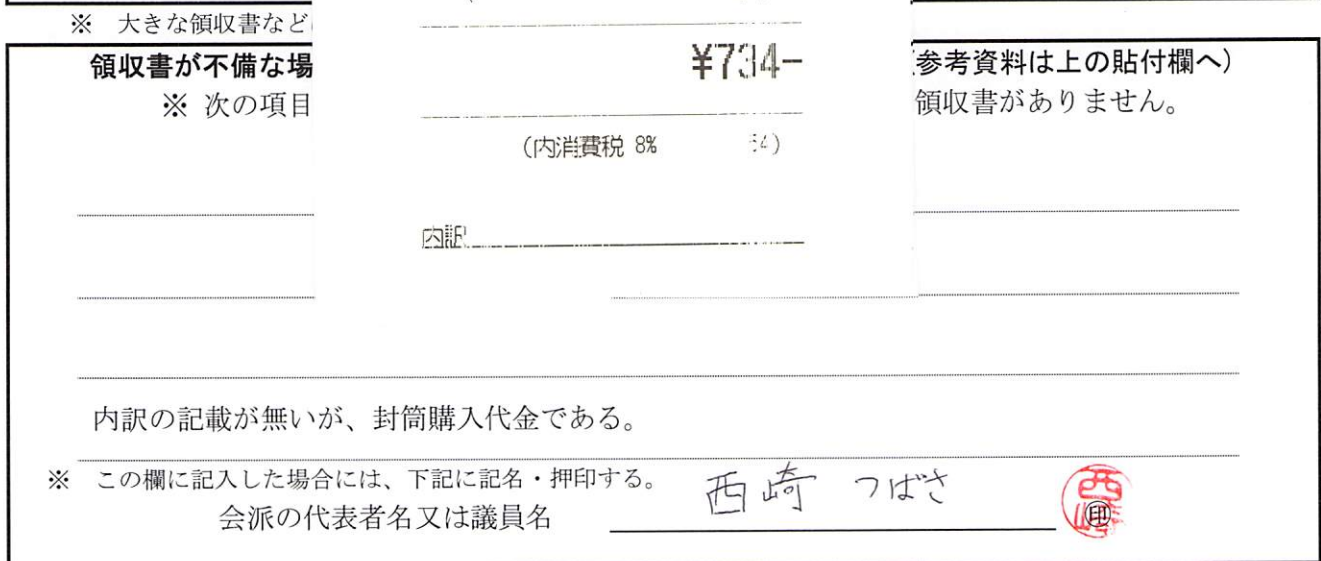 ※ 大きな領収書など
領収書が不備な場
¥734-
(参考資料は上の貼付欄へ)
※ 次の項目
領収書がありません。
(内消費税 8% 54)
内訳
内訳の記載が無いが、封筒購入代金である。
※ この欄に記入した場合には、下記に記名・押印する。
西崎 つばさ
会派の代表者名又は議員名
西崎
印